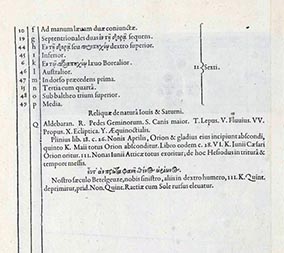 10 f Ad manum læuam duæ coniunctæ.
19 g Septentrionales duæ in sequens.
44 h dextro superior.
45 i Inferior.
6 k læuo Borealior.
46 l Australior.
17 m In dorso præcedens prima.
15 n Tertia cum quarta.
48 o Sub balteho trium superior.
49 p Media.
11. Sexti.
Reliquæ de natura Iouis & Saturni.
Q Aldebaran. R. Pedes Geminorum. S. Canis maior. T. Lepus. V. Fluuius. VV.
Propus. X. Ecliptica. Y. Æquinoctialis.
Plinius lib. 18. c. 26. Nonis Aprilis, Orion & gladius eius incipiunt abscondi,
quinto K. Maii totus Orion absconditur. Libro eodem c. 28. VI. K. Iunii Cæsari
Orion oritur. III. Nonas Iunii Atticæ totus exoritur, de hoc Hesiodus in tritura &
tempore messis.
Nostro sæculo Betelgeuze, nobis sinistro, aliis in dextro humero, III. K. Quint.
deprimitur, prid. Non. Quint. Rætiæ cum Sole rursus eleuatur.